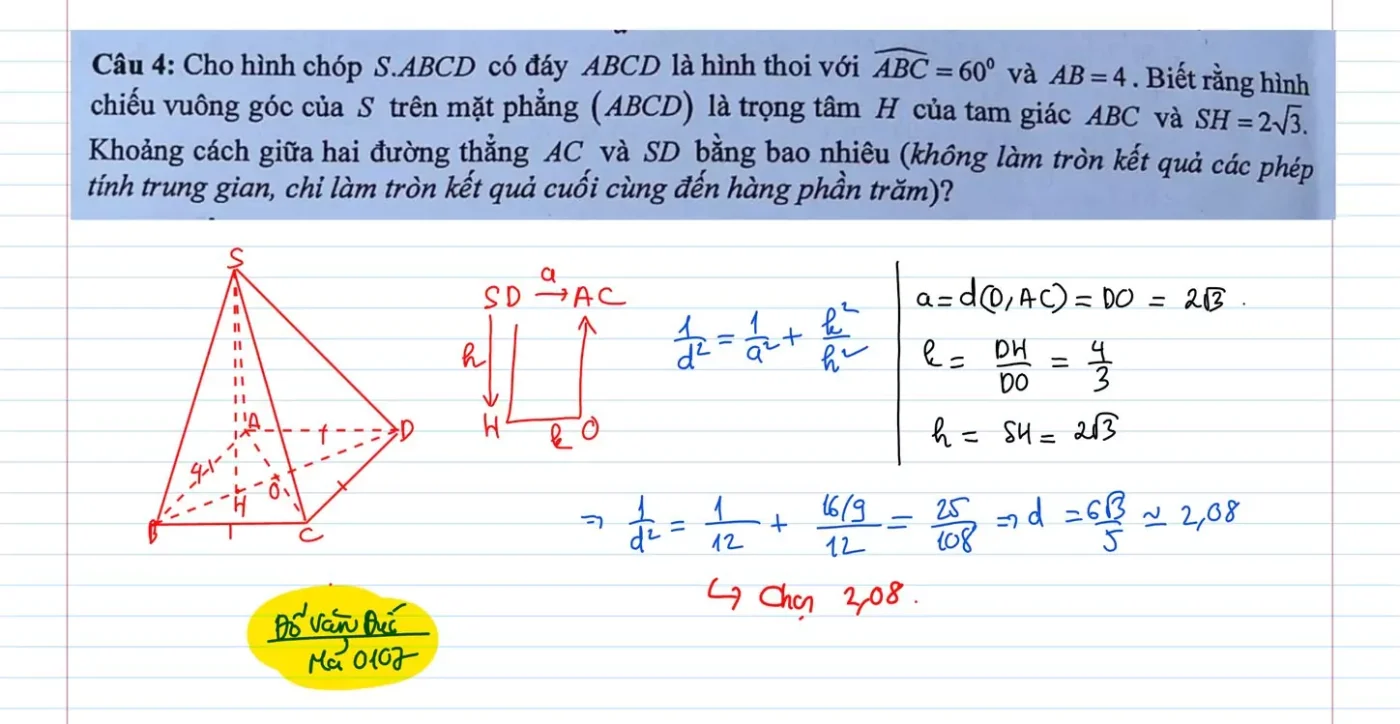 Câu 4: Cho hình chóp S.ABCD có đáy ABCD là hình thoi với $\widehat{ABC}$ = 60⁰ và AB = 4. Biết rằng hình
chiếu vuông góc của S trên mặt phẳng (ABCD) là trọng tâm H của tam giác ABC và SH = 2√3.
Khoảng cách giữa hai đường thẳng AC và SD bằng bao nhiêu (không làm tròn kết quả các phép
tính trung gian, chỉ làm tròn kết quả cuối cùng đến hàng phần trăm)?
S
A
D
4
O
H
B
C
a
SD → AC
h
H k O
1/d² = 1/a² + k²/h²
a = d(D, AC) = DO = 2√3.
k = DH/DO = 4/3
h = SH = 2√3
⇒ 1/d² = 1/12 + (16/9)/12 = 25/108 ⇒ d = 6√3/5 ≃ 2,08
↳ Chọn 2,08.
Đỗ Văn Đức
Mả 0107